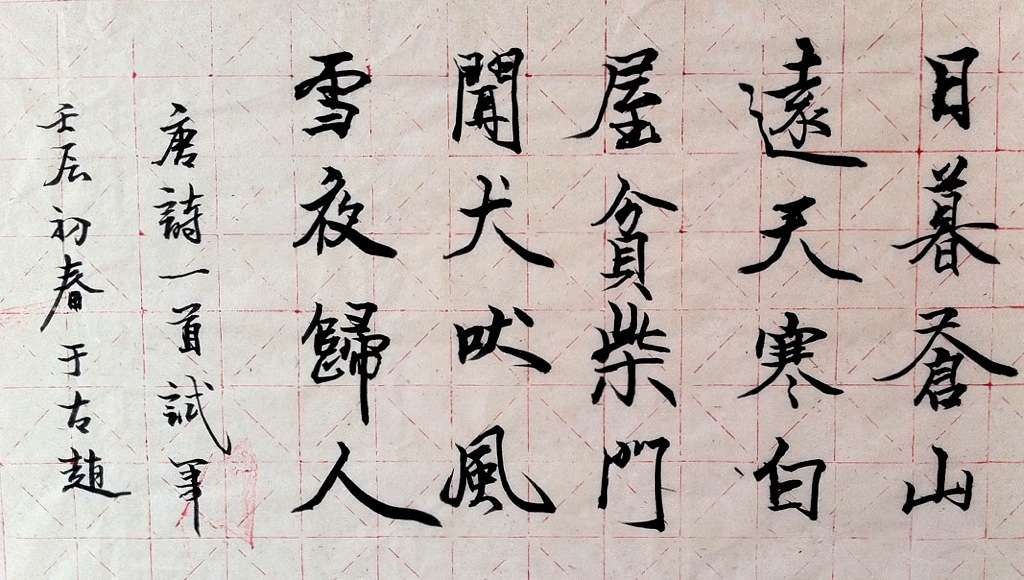 日暮蒼山
遠天寒白
屋貧柴門
聞犬吠風
雪夜歸人
唐詩一首試筆
壬辰初春于古趙